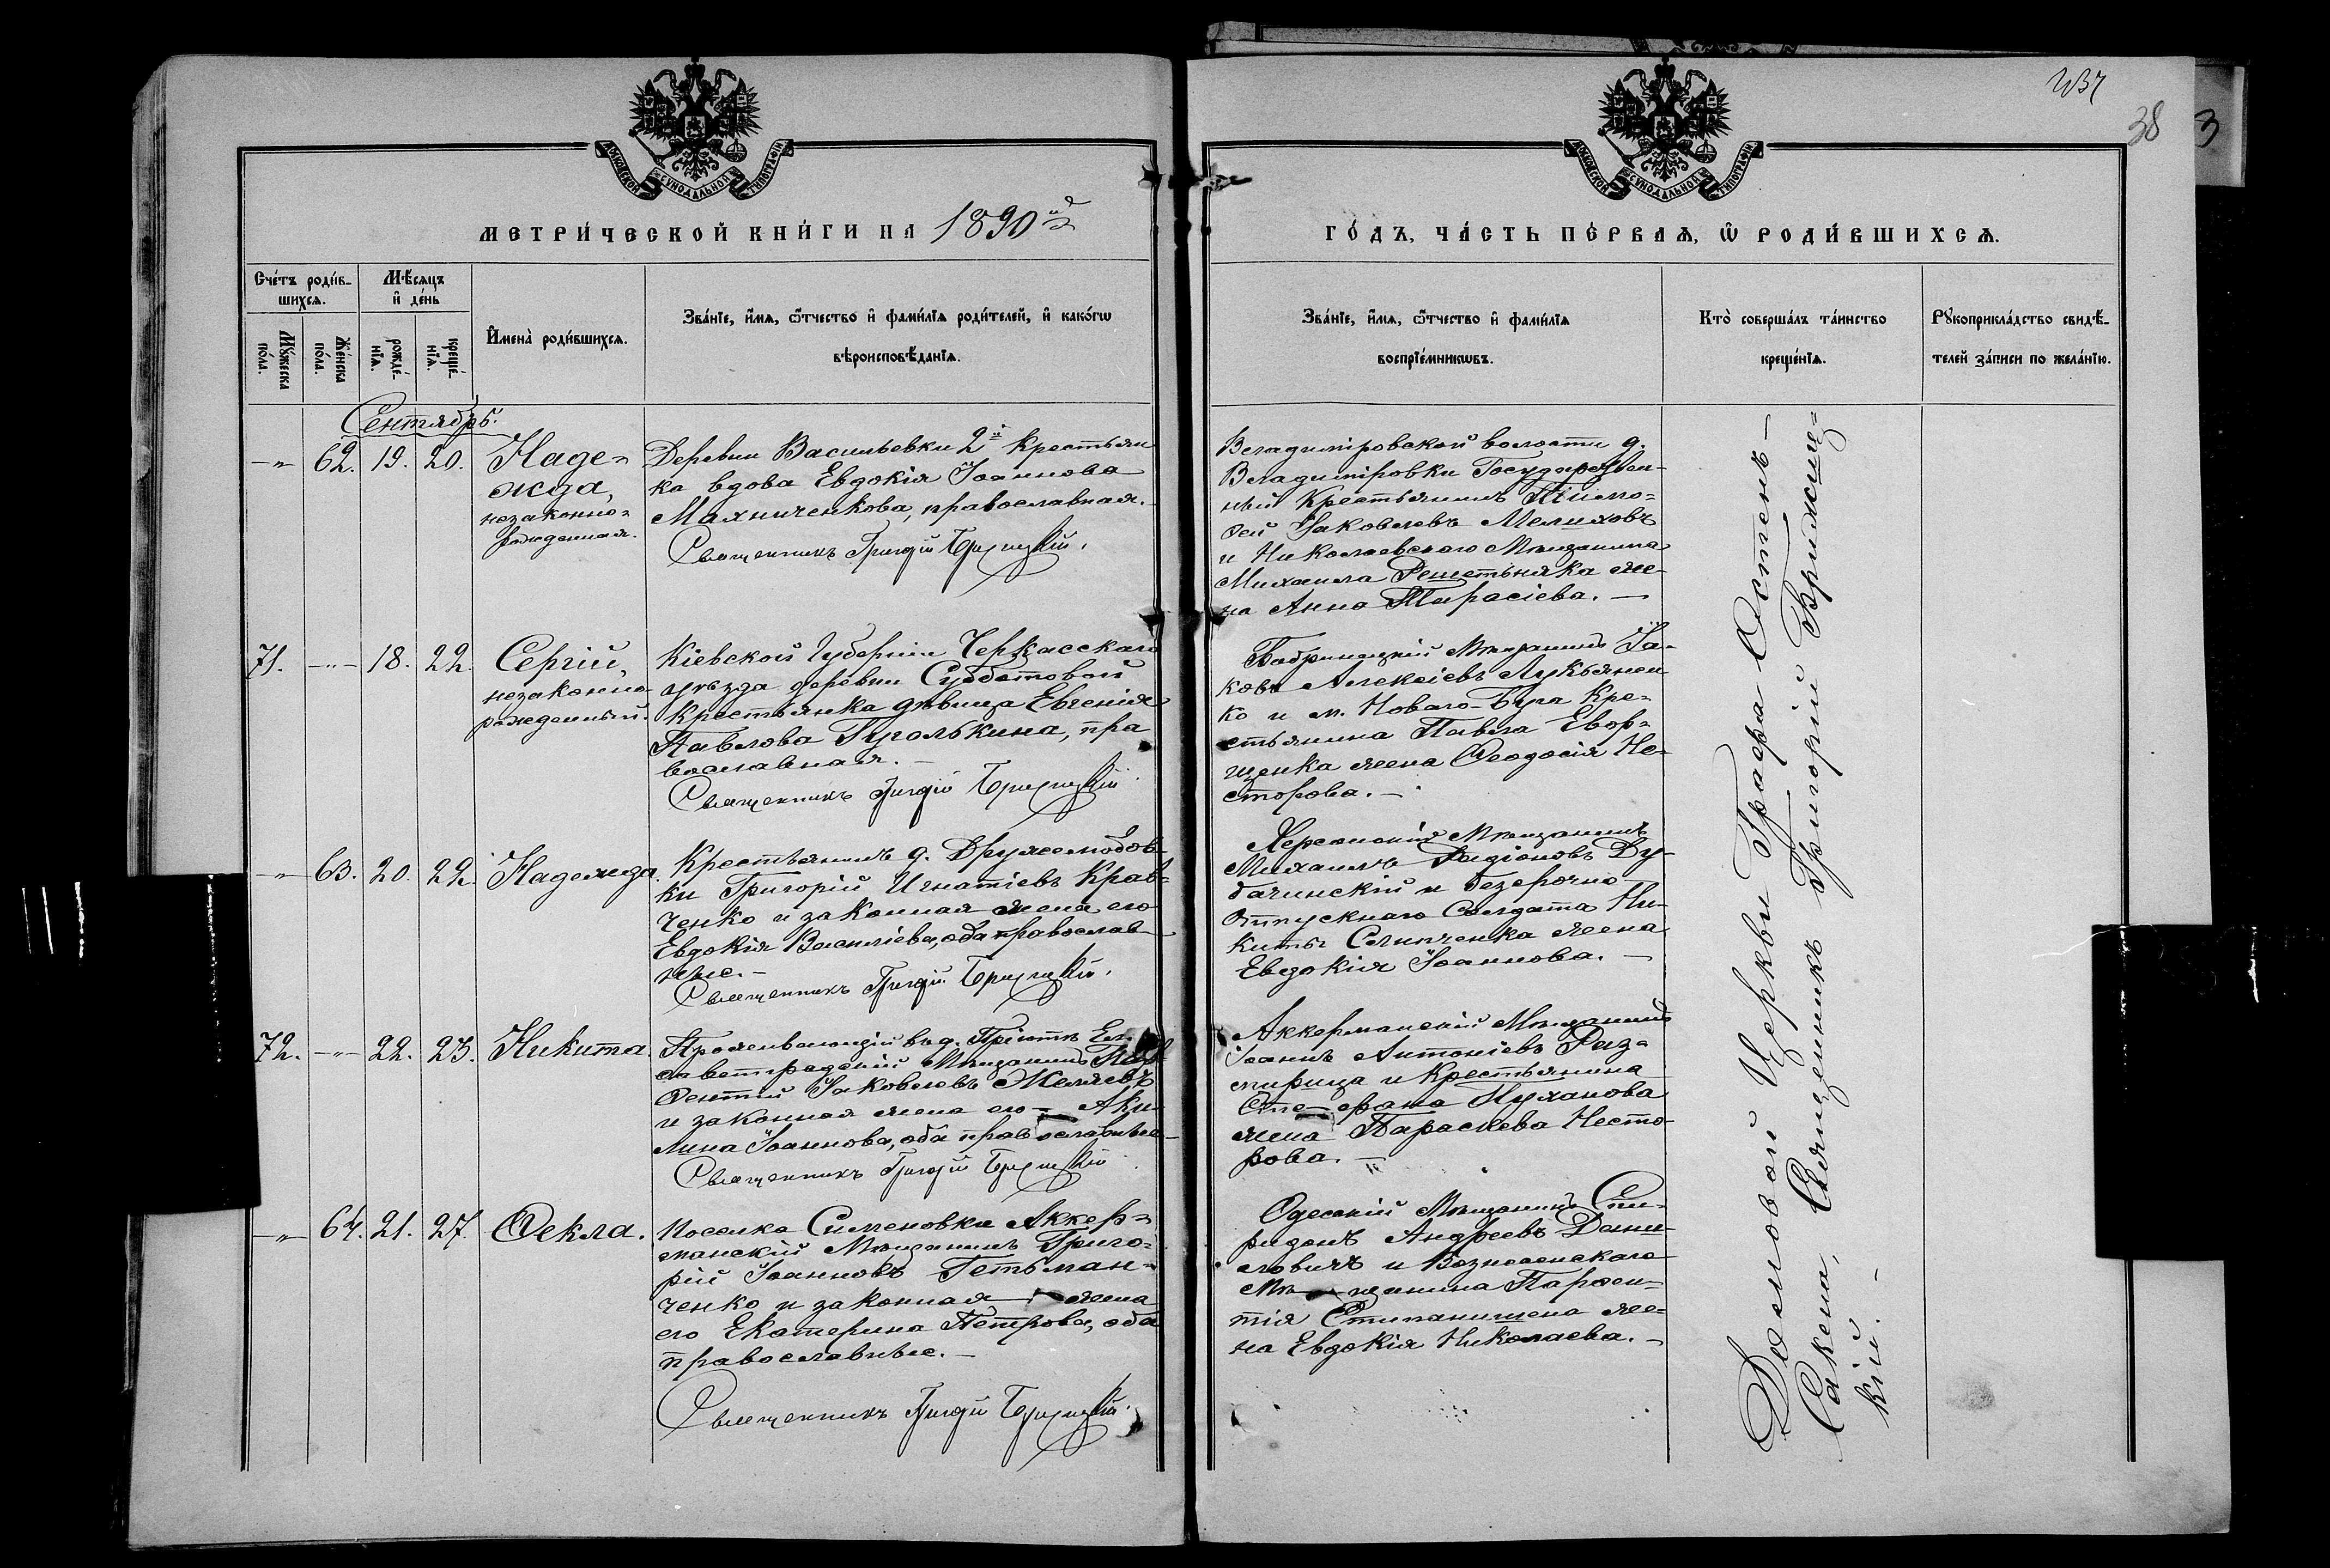 38
3
МОСКОВСКОЙ СѴНОДАЛЬНОЙ ТИПОГРАФІИ
МОСКОВСКОЙ СѴНОДАЛЬНОЙ ТИПОГРАФІИ
МЕТРИ́ЧЕСКОЙ КНИ́ГИ НА 1890й
ГО́ДЪ, ЧА́СТЬ ПЕ́РВАѦ, Ѿ РОДИ́ВШИХСѦ.
Сче́тъ роди́в-
шихсѧ.
Мѣ́сѧцъ
и҆ де́нь
Мꙋ́жеска
по́ла.
Же́нска
по́ла.
рожде́-
нїѧ.
креще́-
нїѧ.
И҆мена̀ роди́вшихсѧ.
Зва́нїе, и҆́мѧ, ѻ҆́тчество и҆ фами́лїѧ роди́телей, и҆ како́гѡ
вѣроисповѣ́данїѧ.
Зва́нїе, и҆́мѧ, ѻ҆́тчество и҆ фами́лїѧ
воспрїе́мникѡвъ.
Кто̀ соверша́лъ та́инство
креще́нїѧ.
Рꙋкоприкла́дство свидѣ́-
телей за́писи по жела́нїю.
Сентябрь.
-"- 62. 19. 20.
Наде-
жда,
незаконно-
рожденная.
Деревни Васильевки 2й крестьян
ка вдова Евдокія Іоаннова
Махниченкова, православная.
Священникъ Григорій Брижицкій.
Владиміровской волости д.
Владиміровки Государствен-
ный Крестьянинъ Тимо-
фей Іаковлевъ Мелиховъ
и Николаевскаго Мѣщанина
Михаила Решетьняка же-
на Анна Тарасіева.
71. -"- 18. 22.
Сергій,
незаконно-
рожденный.
Кіевской Губерніи Черкасскаго
уѣзда деревни Субботовой
Крестьянка дѣвица Евгенія
Павлова Гуголькина, пра
вославная.-
Священникъ Григорій Брижицкій
Бобринецкій Мѣщанинъ Іа-
ковъ Алексіевъ Лукьянен
ко и м. Новаго-Буга Кре-
стьянина Павла Евор-
щенка жена Ѳеодосія Не-
сторова.-
-"- 63. 20. 22.
Надежда.
Крестьянинъ д. Дружелюбов-
ки Григорій Игнатіевъ Крав-
ченко и законная жена его
Евдокія Василіева, оба православ
ные.-
Священникъ Григорій Брижицкій.
Херсонскій Мѣщанинъ
Михаилъ Радіоновъ Ду-
бачинскій и безсрочно
отпускнаго Солдата Ни-
киты Слипченка жена
Евдокія Іоаннова.-
72. -"- 22. 23.
Никита.
Проживающій въ д. Пріютъ Ели-
саветградскій Мѣщанинъ
Іаковлевъ Желяевъ
и законная жена его - Аки-
лина Іоаннова, оба православные
Священникъ Григорій Брижицкій
Аккерманскій Мѣщанинъ
Іоаннъ Антоніевъ Раз-
мирица и Крестьянина
Стефана Пуханова
жена Параскева Несто-
рова.
-"- 64. 21. 27.
Ѳекла.
Поселка Сименовки Аккер-
манскій Мѣщанинъ Григо-
рій Іоанновъ Гетьман-
ченко и законная жена
его Екатерина Петрова, оба
православные.-
Священникъ Григорій Брижицкій.
Одесскій Мѣщанинъ Спи-
ридонъ Андреевъ Дани-
ловичъ и Вознесенскаго
Мѣщанина Парфен-
тія Стипанишена же-
на Евдокія Николаева.-
Домовой Церкви Графа Остенъ-
Сакена, Священникъ Григорій Брижиц-
кій.-